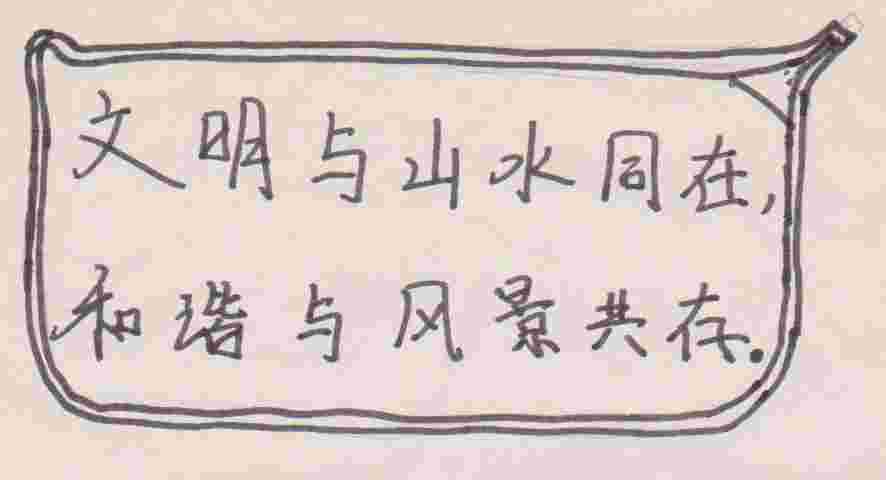 文明与山水同在,
和谐与风景共存.